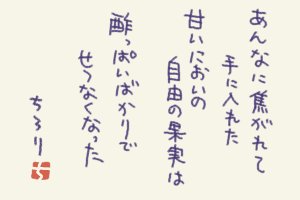 あんなに焦がれて
手に入れた
甘いにおいの
自由の果実は
酸っぱいばかりで
せつなくなった
ちろり